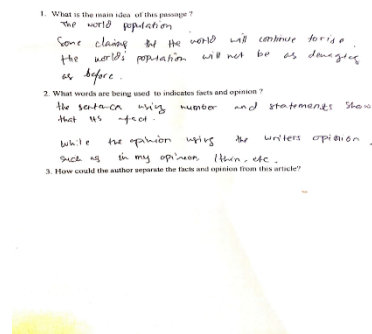 1. What is the main idea of this passage ?
The world population
Some claims that the world will continue to rise.
the world's poptation will not be as
as before.
2. What words are being used to indicates facts and opinion ?
the sentence using number and statements show
that its fact.
while the opinion using the writers opinion
such as in my opinion, I thin, etc.
3. How could the author separate the facts and opinion from this article?